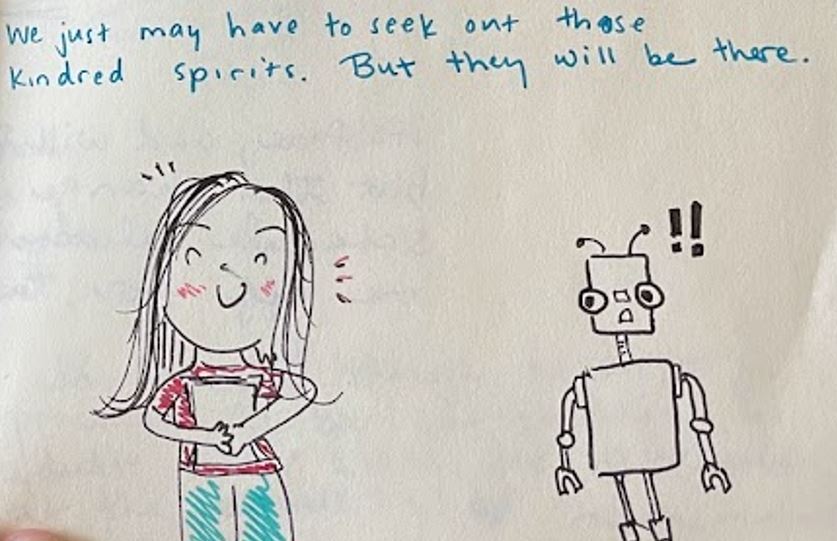 We just may have to seek out those
kindred spirits. But they will be there.
!!